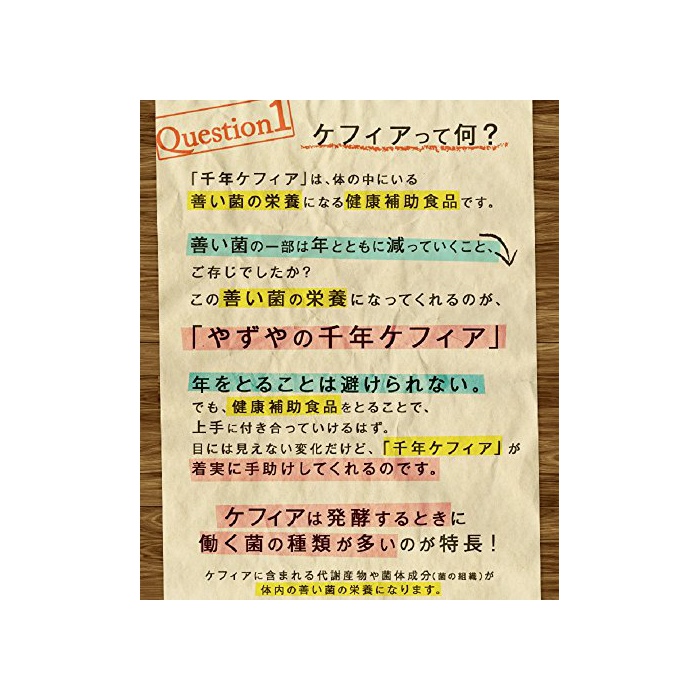 Question1
ケフィアって何？
「千年ケフィア」は、体の中にいる
善い菌の栄養になる健康補助食品です。
善い菌の一部は年とともに減っていくこと、
ご存じでしたか？
この善い菌の栄養になってくれるのが、
「やずやの千年ケフィア」
年をとることは避けられない。
でも、健康補助食品をとることで、
上手に付き合っていけるはず。
目には見えない変化だけど、「千年ケフィア」が
着実に手助けしてくれるのです。
ケフィアは発酵するときに
働く菌の種類が多いのが特長！
ケフィアに含まれる代謝産物や菌体成分(菌の組織)が
体内の善い菌の栄養になります。